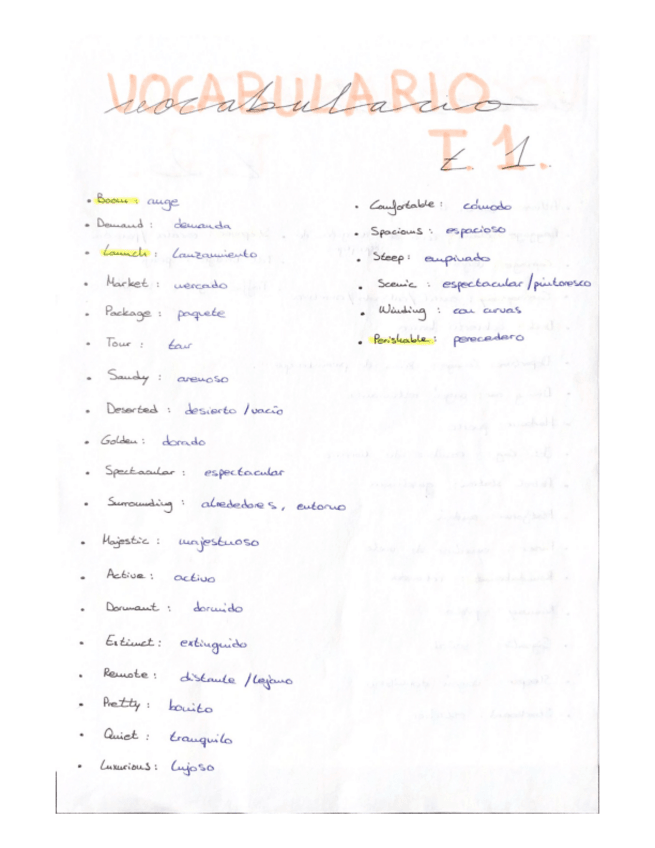 VOCABULARIO
vocabulario
T. 1.
t. 1.
• Boom : auge
• Demand : demanda
• Launch : lanzamiento
• Market : mercado
• Package : paquete
• Tour : tour
• Sandy : arenoso
• Deserted : desierto / vacío
• Golden : dorado
• Spectacular : espectacular
• Surrounding : alrededores, entorno
• Majestic : majestuoso
• Active : activo
• Dormant : dormido
• Extinct : extinguido
• Remote : distante / lejano
• Pretty : bonito
• Quiet : tranquilo
• Luxurious : lujoso
• Comfortable : cómodo
• Spacious : espacioso
• Steep : empinado
• Scenic : espectacular / pintoresco
• Winding : con curvas
• Perishable : perecedero